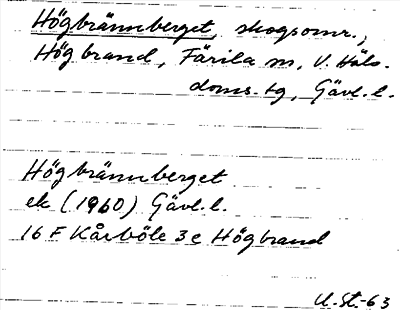 Högbrännberget, skogsomr.,
Högbrand, Färila sn, V. Häls.
doms. tg, Gävl. l.
Högbrännberget
ek (1960) Gävl. l.
16 F Kårböle 3 e Högbrand
U. St.-63